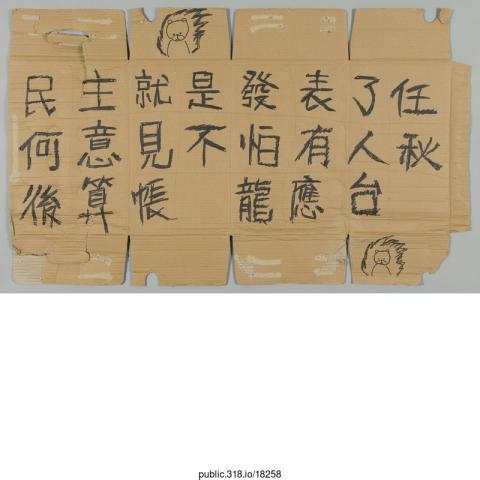 民主就是發表了任
何意見不怕有人秋
後算帳 龍應台
public.318.io/18258